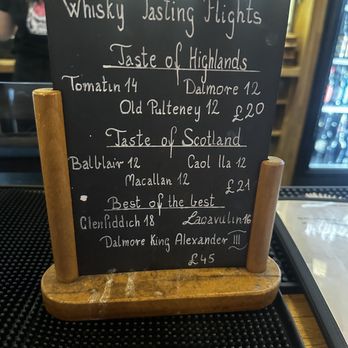 Whisky Tasting Flights
Taste of Highlands
Tomatin 14 Dalmore 12
Old Pulteney 12 £20
Taste of Scotland
Balblair 12 Caol Ila 12
Macallan 12 £21
Best of the best
Glenfiddich 18 Lagavulin 16
Dalmore King Alexander III
£45